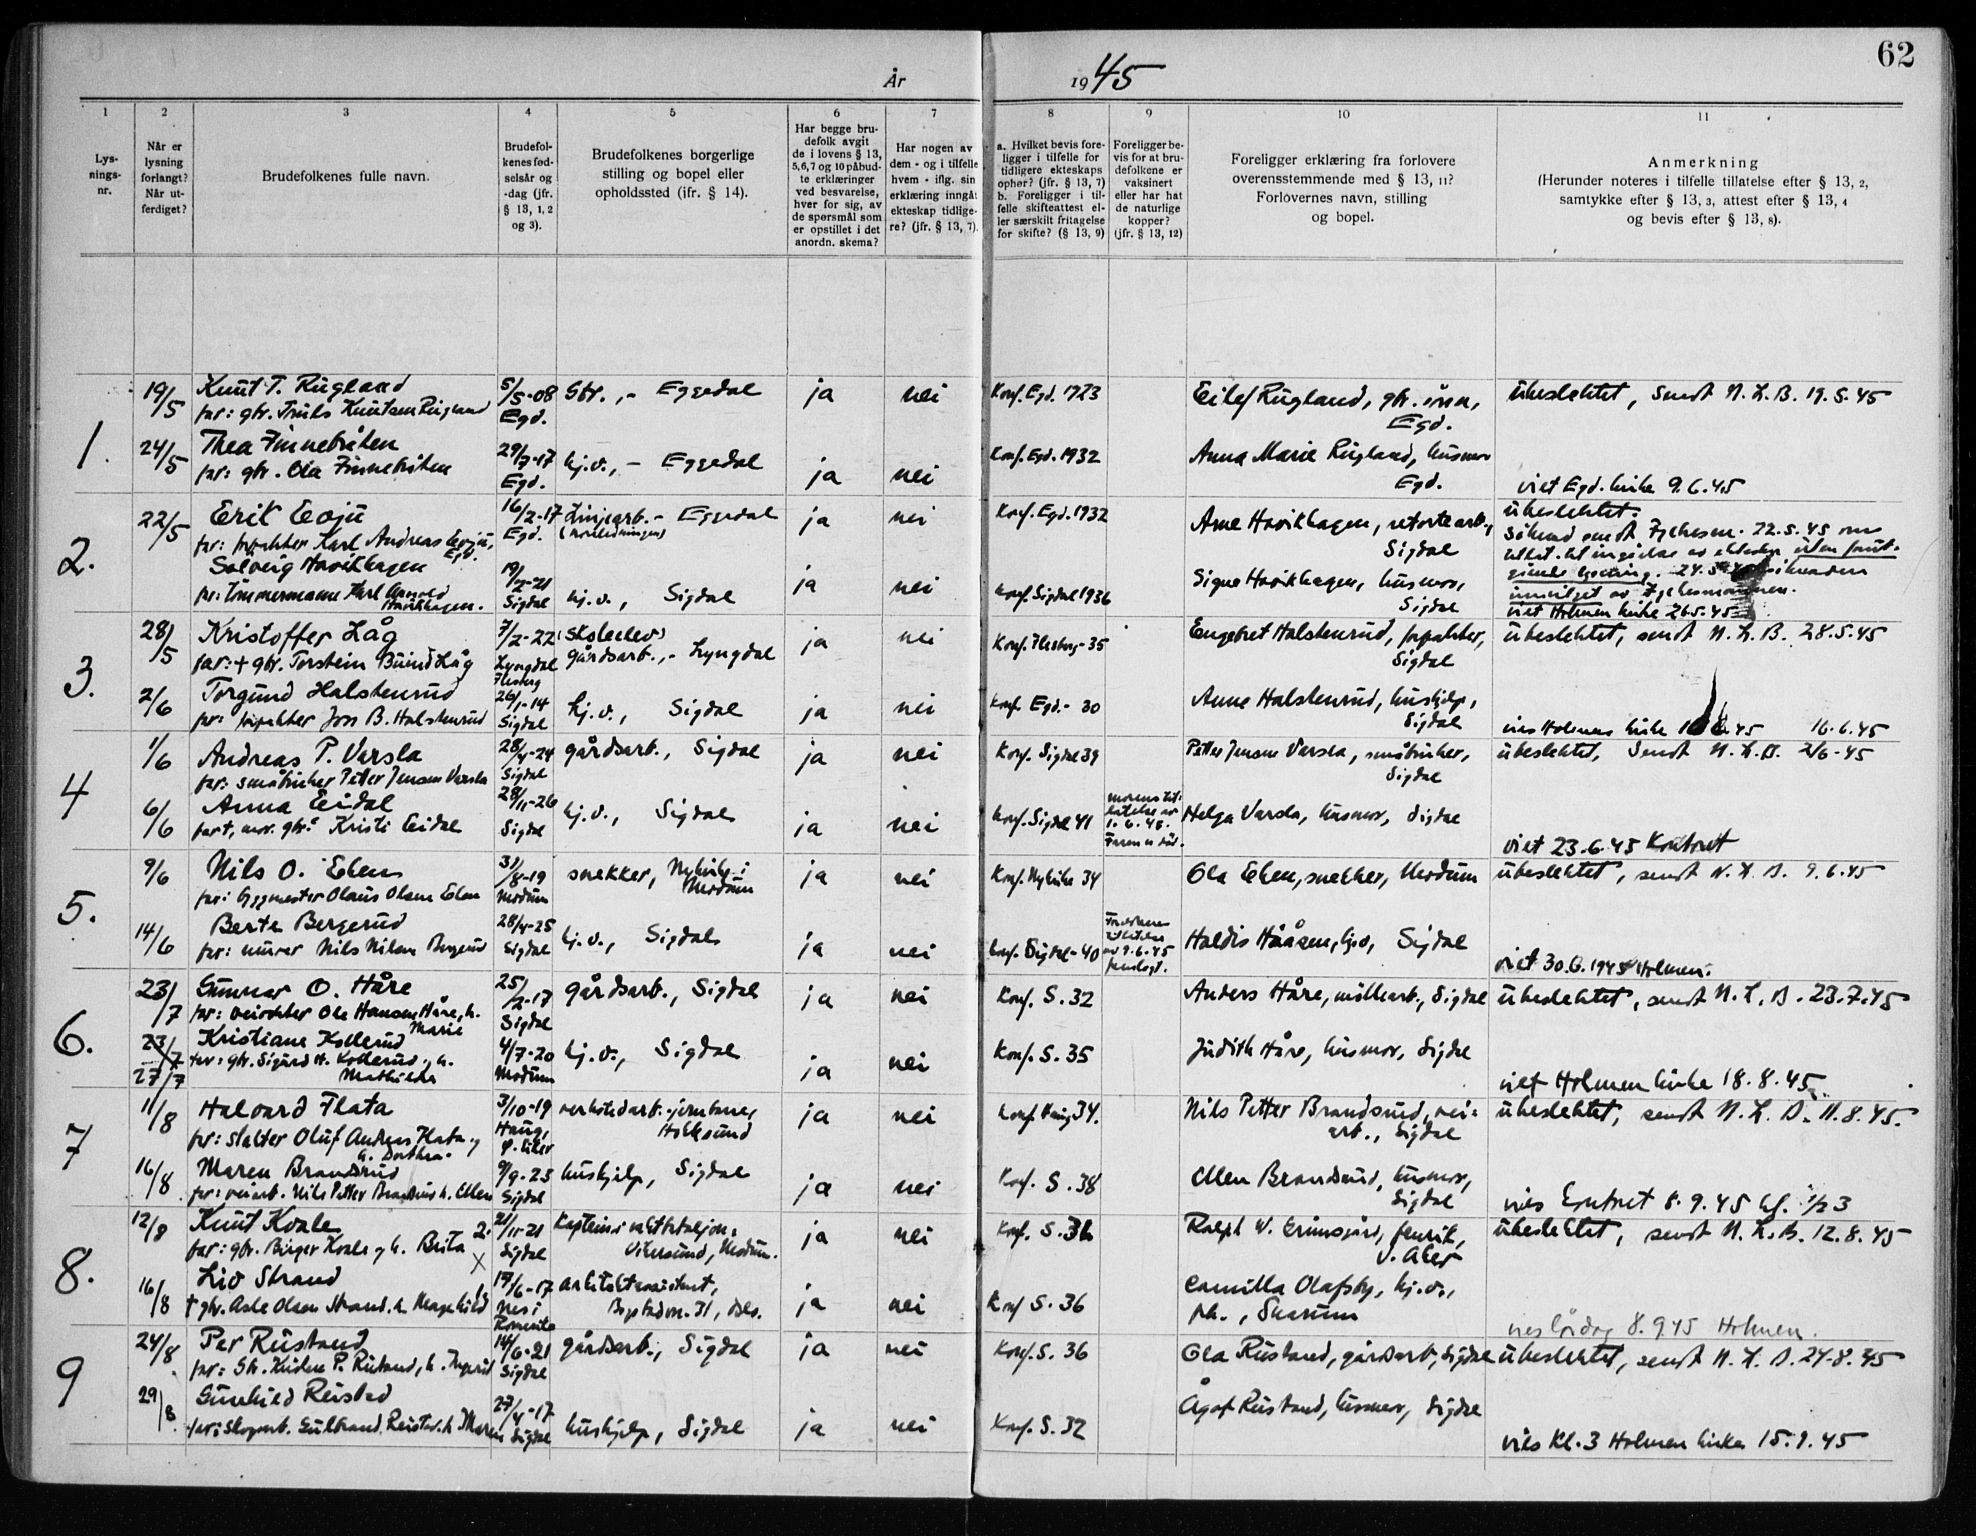 62
År 1945
1
Lys-
nings-
nr.
2
Når er
lysning
forlangt?
Når ut-
ferdiget?
3
Brudefolkenes fulle navn.
4
Brudefol-
kenes fød-
selsår og
-dag (jfr.
§ 13, 1, 2
og 3).
5
Brudefolkenes borgerlige
stilling og bopel eller
opholdssted (ifr. § 14).
6
Har begge bru-
defolk avgit
de i lovens § 13,
5,6,7 og 10 påbud-
te erklæringer
ved besvarelse,
hver for sig, av
de spørsmål som
er opstillet i det
anordn. skema?
7
Har nogen av
dem - og i tilfelle
hvem - iflg. sin
erklæring inngåt
ekteskap tidlige-
re? (jfr. § 13, 7).
8
a. Hvilket bevis fore-
ligger i tilfelle for
tidligere ekteskaps
ophør? (jfr. § 13, 7)
b. Foreligger i til-
felle skifteattest el-
ler særskilt fritagelse
for skifte? (§ 13, 9)
9
Foreligger be-
vis for at bru-
defolkene er
vaksinert
eller har hat
de naturlige
kopper?
(jfr. § 13, 12)
10
Foreligger erklæring fra forlovere
overensstemmende med § 13, 11?
Forlovernes navn, stilling
og bopel.
11
Anmerkning
(Herunder noteres i tilfelle tillatelse efter § 13, 2,
samtykke efter § 13, 3, attest efter § 13, 4
og bevis efter § 13, 8).
1.
19/5 Knut T. Rugland 5/5-08 Gbr., - Eggedal ja nei Konf. Egd. 1923 Eilef Rugland, gbr. sønn, ubeslektet, sendt N. L. B. 19.5.45
far: gbr. Truls Knutsen Rugland Egd. Egd.
24/5 Thea Finnebråten 29/7-17 hj.v., - Eggedal ja nei Konf. Egd. 1932 Anna Marie Rugland, husmor
far: gbr. Ola Finnebråten Egd. Egd. viet Egd. kirke 9.6.45
2.
22/5 Erik Eoju 16/2-17 Linjearb. - Eggedal ja nei Konf. Egd. 1932 Arne Havikhagen, retortearb., ubeslektet.
far: forpakter Karl Andreas Eoju, Egd. Egd. Sigdal
Solveig Havikhagen 19/2-21 hj.v., Sigdal ja nei Konf. Sigdal 1936 Signe Havikhagen, husmor,
far: tømmermann Karl Havikhagen. Sigdal Sigdal innvilget av Fylkesmannen.
viet Holmen kirke 26.5.45
3.
28/5 Kristoffer Låg 7/2-22 (skoleelev) ja nei Konf. Flesberg - 35 Engebret Halstenrud, forpakter, ubeslektet, sendt N. L. B. 28.5.45
far: + gbr. Torstein Låg Lyngdal Flesberg gårdsarb., - Lyngdal Sigdal
2/6 Torgund Halstenrud 26/1-14 hj.v., Sigdal ja nei Konf. Egd. - 30 Anne Halstenrud, hushjelp,
far: forpakter Jon B. Halstenrud Sigdal Sigdal vies Holmen kirke 16.6.45
4
1/6 Andreas P. Varsla 28/4-24 gårdsarb., Sigdal ja nei Konf. Sigdal 39 Petter Jensen Varsla, småbruker, ubeslektet, sendt N. L. B. 2/6-45
far: småbruker Petter Jensen Varsla Sigdal Sigdal
6/6 Anna Eidal 28/11-26 hj.v., Sigdal ja nei Konf. Sigdal 41 Helga Varsla, husmor, Sigdal
far +, mor. gbr. Kristi Eidal Sigdal viet 23.6.45 Kontoret
5.
9/6 Nils O. Eken 31/8-19 snekker, Nykirke i Modum ja nei Konf. Nykirke 34 Ola Eken, snekker, Modum ubeslektet, sendt N. L. B. 9.6.45
far: byggmester Olaus Olsen Eken Modum
14/6 Berte Bergerud 28/4-25 hj.v., Sigdal ja nei Konf. Sigdal - 40 Haldis Hååsen, hj.v, Sigdal
far: murer Nils Nilsen Bergerud Sigdal viet 30.6.1945 Holmen.
6.
23/7 Gunnar O. Håre 25/2-17 gårdsarb., Sigdal ja nei Konf. S. 32 Anders Håre, møllearb., Sigdal ubeslektet, sendt N. L. B. 23.7.45
far: veivokter Ole Hansen Håre, h. Marie Sigdal
27/7 Kristiane Kollerud 4/7-20 hj.v., Sigdal ja nei Konf. S. 35 Judith Håre, husmor, Sigdal
far: gbr. Sigurd H. Kollerud, h. Mathilda Modum viet Holmen kirke 18.8.45
7
11/8 Halvard Flata 3/10-19 verkstedarb. Hokksund ja nei Konf. Haug 34. Nils Petter Brandsrud, vei- ubeslektet, sendt N. L. B. 11.8.45.
far: slakter Oluf Anders Flata og h. Dorthea. Haug, Ø. Eiker arb., Sigdal
16/8 Maren Brandsrud 9/9-23 hushjelp, Sigdal ja nei Konf. S. 38 Ellen Brandsrud, husmor,
far: veiarb. Nils Petter Brandsrud h. Ellen Sigdal Sigdal vies kontoret 8.9.45 kl. 1/2 3
8.
12/8 Knut Kvale 21/11-21 Kaptein i vaktbataljon: ja nei Konf. S. 36 Ralph W. Grimsgård, fenrik, ubeslektet, sendt N. L. B. 12.8.45
far: gbr. Birger Kvale og h. Berta Sigdal Vikersund, Modum. V. Aker
16/8 Liv Strand 19/6-17 arkitektassistent, ja nei Konf S. 36 Camilla Olafsby, hj.v.,
+ gbr. Asle Olsen Strand. h. Magnhild Nes i Romerike Bygdøn. 31, Oslo. Snarum vies lørdag 8.9.45 Holmen.
9
24/8 Per Rustand 14/6-21 gårdsarb., Sigdal ja nei Konf. S. 36 Ola Rustand, gårdsarb, Sigdal ubeslektet, sendt N. L. B. 24.8.45
far: Gbr. Kristen P. Rustand, h. Ingrid Sigdal
29/8. Gunhild Reistad 27/4-17 hushjelp, Sigdal ja nei Konf. S. 32 Ågot Rustand, husmor, Sigdal
far: Skogsarb. Gulbrand Reistad. h Maren Sigdal vies kl. 3 Holmen kirke 15.9.45